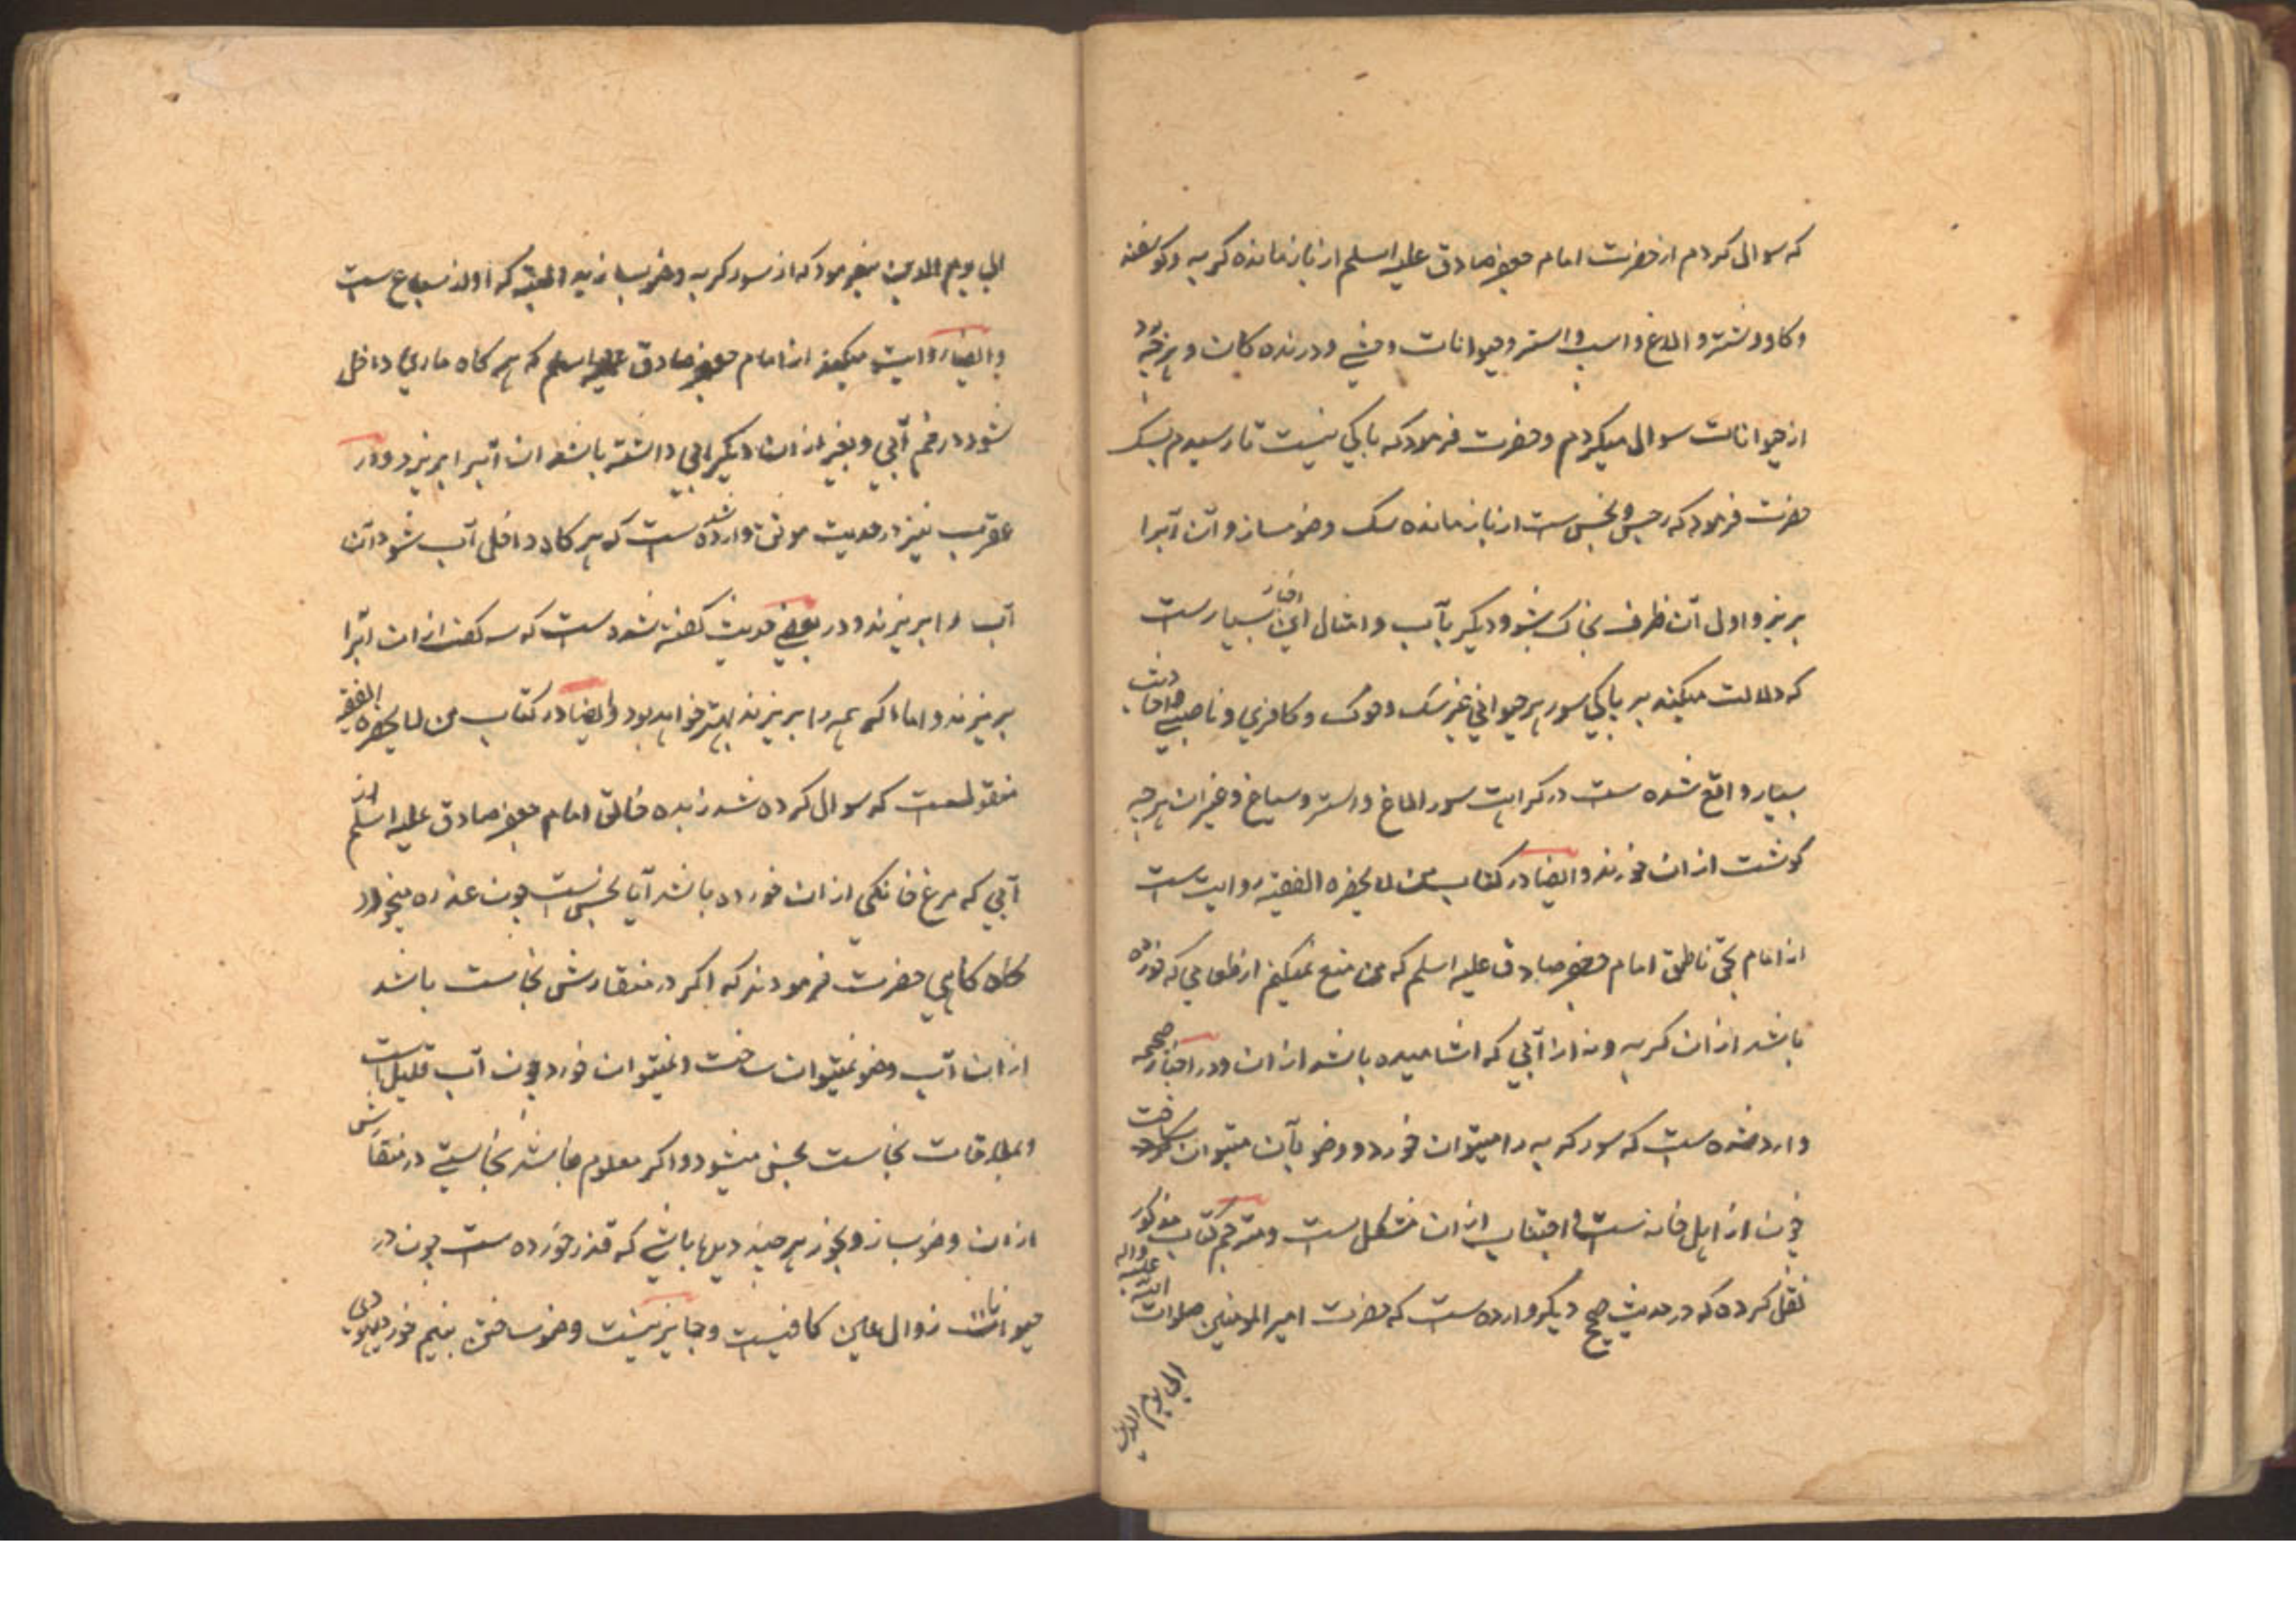 که سوال کردم از حضرت امام جعفر صادق علیه اسلم از باز مانده کربه و کوسفند
و کاو و شتر و الاغ و اسب و استر و حیوانات وحشی و درنده کان و هر چه بود
از حیوانات سوال میکردم و حضرت فرمود که باکی نیست تا رسیدم بسک
حضرت فرمود که رجس و نجس ست از باز مانده سک وضو مساز و آن آبرا
بریز و اول آن ظرف بخاک بشو و دیکر بآب و امثال این اخبار بسیارست
که دلالت میکند بر پاکی سور هر حیوانی غیر سک و خوک و کافری و ناصبی و احادیث
بسیار واقع شده ست در کراهت سور الاغ و استر و سباع و غیر ان هر چه
کوشت از ان خورند و ایضا در کتاب من لا یحضره الفقیه روایت ست
از امام بحق ناطق امام جعفر صادق علیه اسلم که من منع نمیکنم از طعامی که خورده
باشد از ان کربه و نه از آبی که اشامیده باشد از ان و در اخبار صحیحه
وارد شده ست که سور کربه را میتوان خورد و وضو بآن میتوان ساخت
چون از اهل خانه ست و اجتناب از ان مشکل ست و مترجم کتاب مذکور
نقل کرده که در حدیث صحیح دیکر وارده ست که حضرت امیر المومنین صلوات الله علیه واله
الی یوم الدین
الی یوم الدین میفرمود که از سور کربه وضو بسازید والبته که او از سباع ست
و ایضا روایت میکند از امام جعفر صادق علیه اسلم که هر کاه ماری داخل
شود در خم آبی و بغیر از ان دیکر ابی داشته باشد ان آبرا بریزد و در
عقرب نیز در حدیث موثق وارد شده ست که هر کاه داخل آب شود آن
آب را بریزند و در بعضی حدیث کفته شده ست که سه کف از ان آبرا
بریزند و اما اکر همه را بریزند بهتر خواهد بود و ایضا در کتاب من لا یحضره الفقیه
منقولست که سوال کرده شد زبده خالق امام جعفر صادق علیه اسلم از
آبی که مرغ خانکی از ان خورده باشد آیا نجس ست چون عذره میخورد
کاه کاهی حضرت فرمودند که اکر در منقارش نجاست باشد
از ان آب وضو نمیتوان ساخت و نمیتوان خورد چون آب قلیل ست
و بملاقات نجاست نجس میشود و اکر معلوم نباشد نجاستی در منقارش
از ان وضو بساز و بخور هر چند دیده باشی که قذر خورده ست چون در
حیوانات زوال عین کافیست و جایز نیست وضو ساختن بنیم خورد یهودی